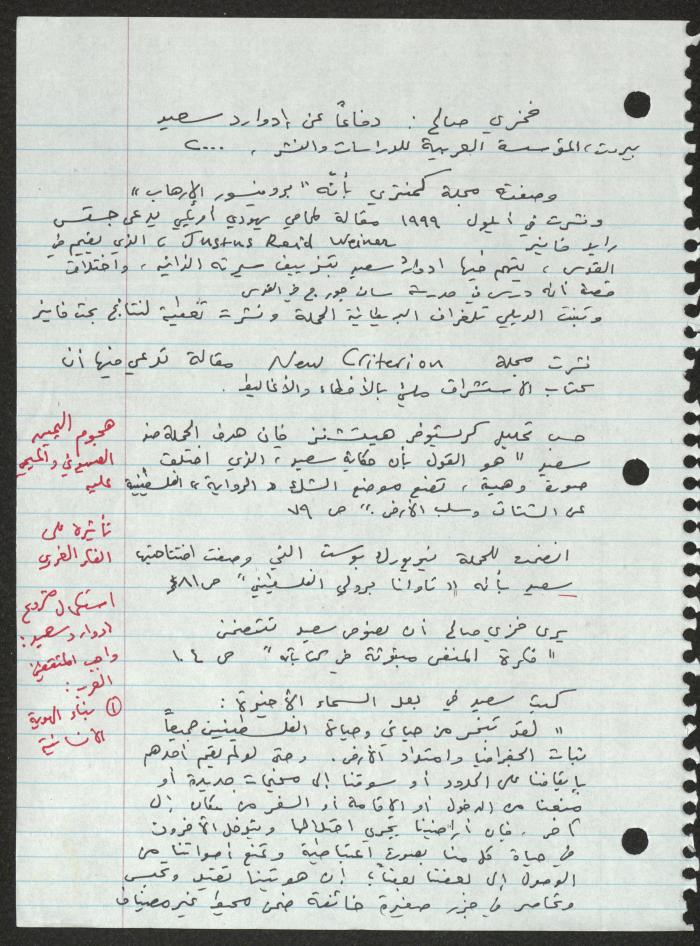 فخري صالح : دفاعاً عن إدوارد سعيد
بيروت، المؤسسة العربية للدراسات والنشر ، ٢٠٠٠
وصفته مجلة كمنتري بأنّه "بروفسور الإرهاب"
ونشرت في أيلول ١٩٩٩ مقالة لمحامي يهودي أمريكي يدعى جستس
رايد فاينر Justus Raid Weiner ، الذي يقيم في
القدس ، يتهم فيها ادوارد سعيد بتزييف سيرته الذاتية ، واختلاق
قصة أنه درس في مدرسة سان جورج في القدس
وتبنت الديلي تلغراف البريطانية الحملة ونشرت تغطية لنتائج بحث فاينر
نشرت مجلة New Criterion مقالة تدعي فيها أن
كتاب الاستشراق مليء بالأخطاء والأغاليط .
حسب تحليل كريستوفر هيتشنز فإن هدف الحملة ضد
سعيد "هو القول بأن حكاية سعيد ، الذي اختلق
صورة وهمية ، تضع موضع الشك الرواية الفلسطينية
عن الشتات وسلب الأرض ." ص ٧٩
انضمت للحملة نيويورك بوست التي وصفت افتتاحيتها
سعيد بأنه "تاوانا برولي الفلسطيني" ص ٨١
يرى فخري صالح أن نصوص سعيد تتضمن
"فكرة المنفى مبثوثة في كتاباته" ص ١٠٤
كتب سعيد في بعد السماء الأخيرة :
"لقد تبخر من حياتي وحياة الفلسطينيين جميعاً
ثبات الجغرافيا وامتداد الأرض . وحتى لو لم يقم أحدهم
بإيقافنا على الحدود أو سوقنا إلى مخيمات جديدة أو
منعنا من الدخول أو الاقامة أو السفر من مكان إلى
آخر ، فإن أراضينا يجري احتلالها ويتدخل الآخرون
في حياة كل منا بصورة اعتباطية وتمنع أصواتنا من
الوصول إلى بعضنا بعضاً ؛ إن هويتنا تقيد وتحبس
وتحاصر في جزر صغيرة خائفة ضمن محيط غير مضياف
هجوم اليمين
الصهيوني والمسيحي
عليه
تأثيره على
الفكر الغربي
استكمال مشروع
ادوارد سعيد :
واجب المثقفين
العرب :
① بناء الهوية
الانسانية